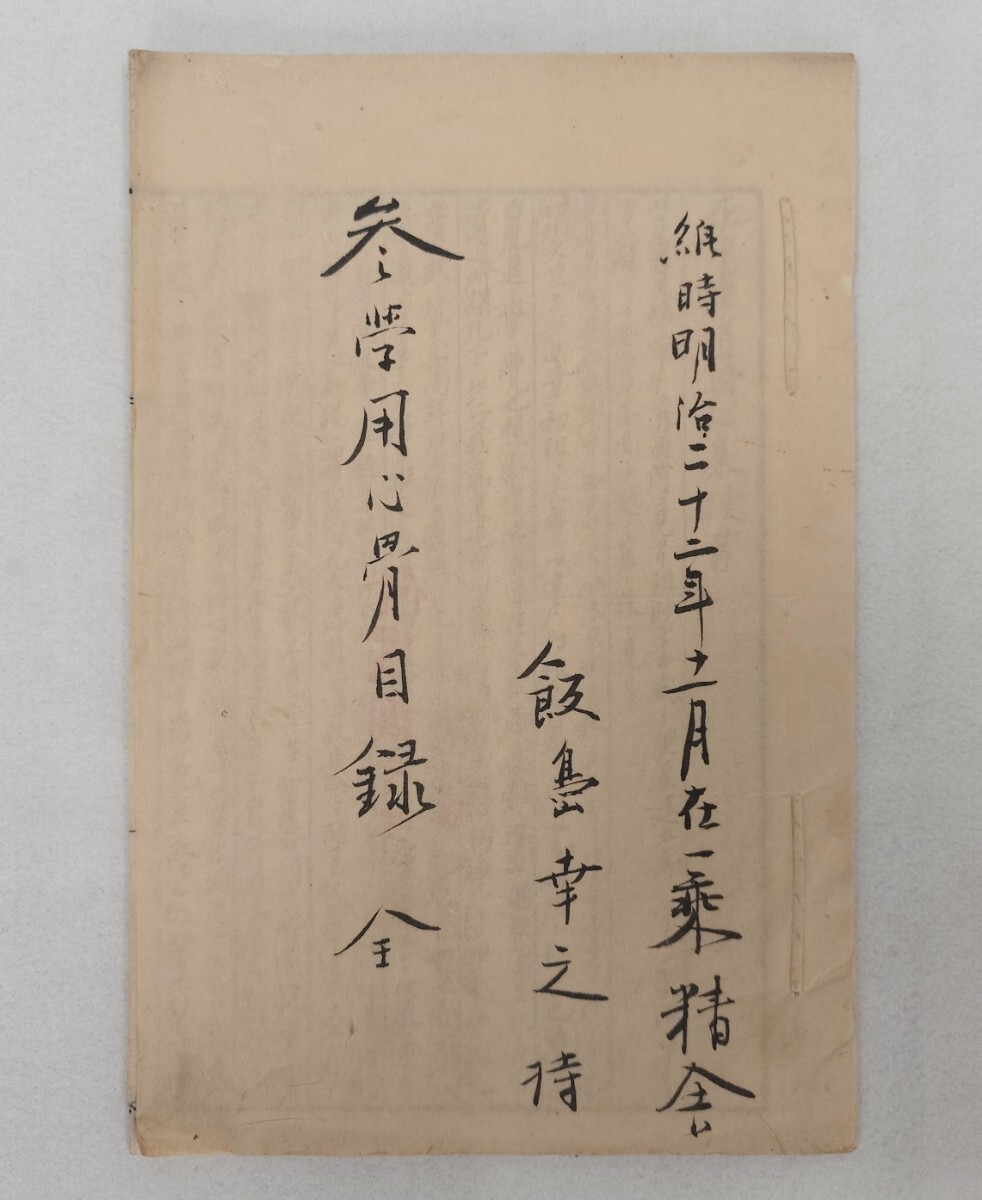 維時明治二十二年十一月在一乘精舎
飯嶌幸之持
参学用心骨目録 全